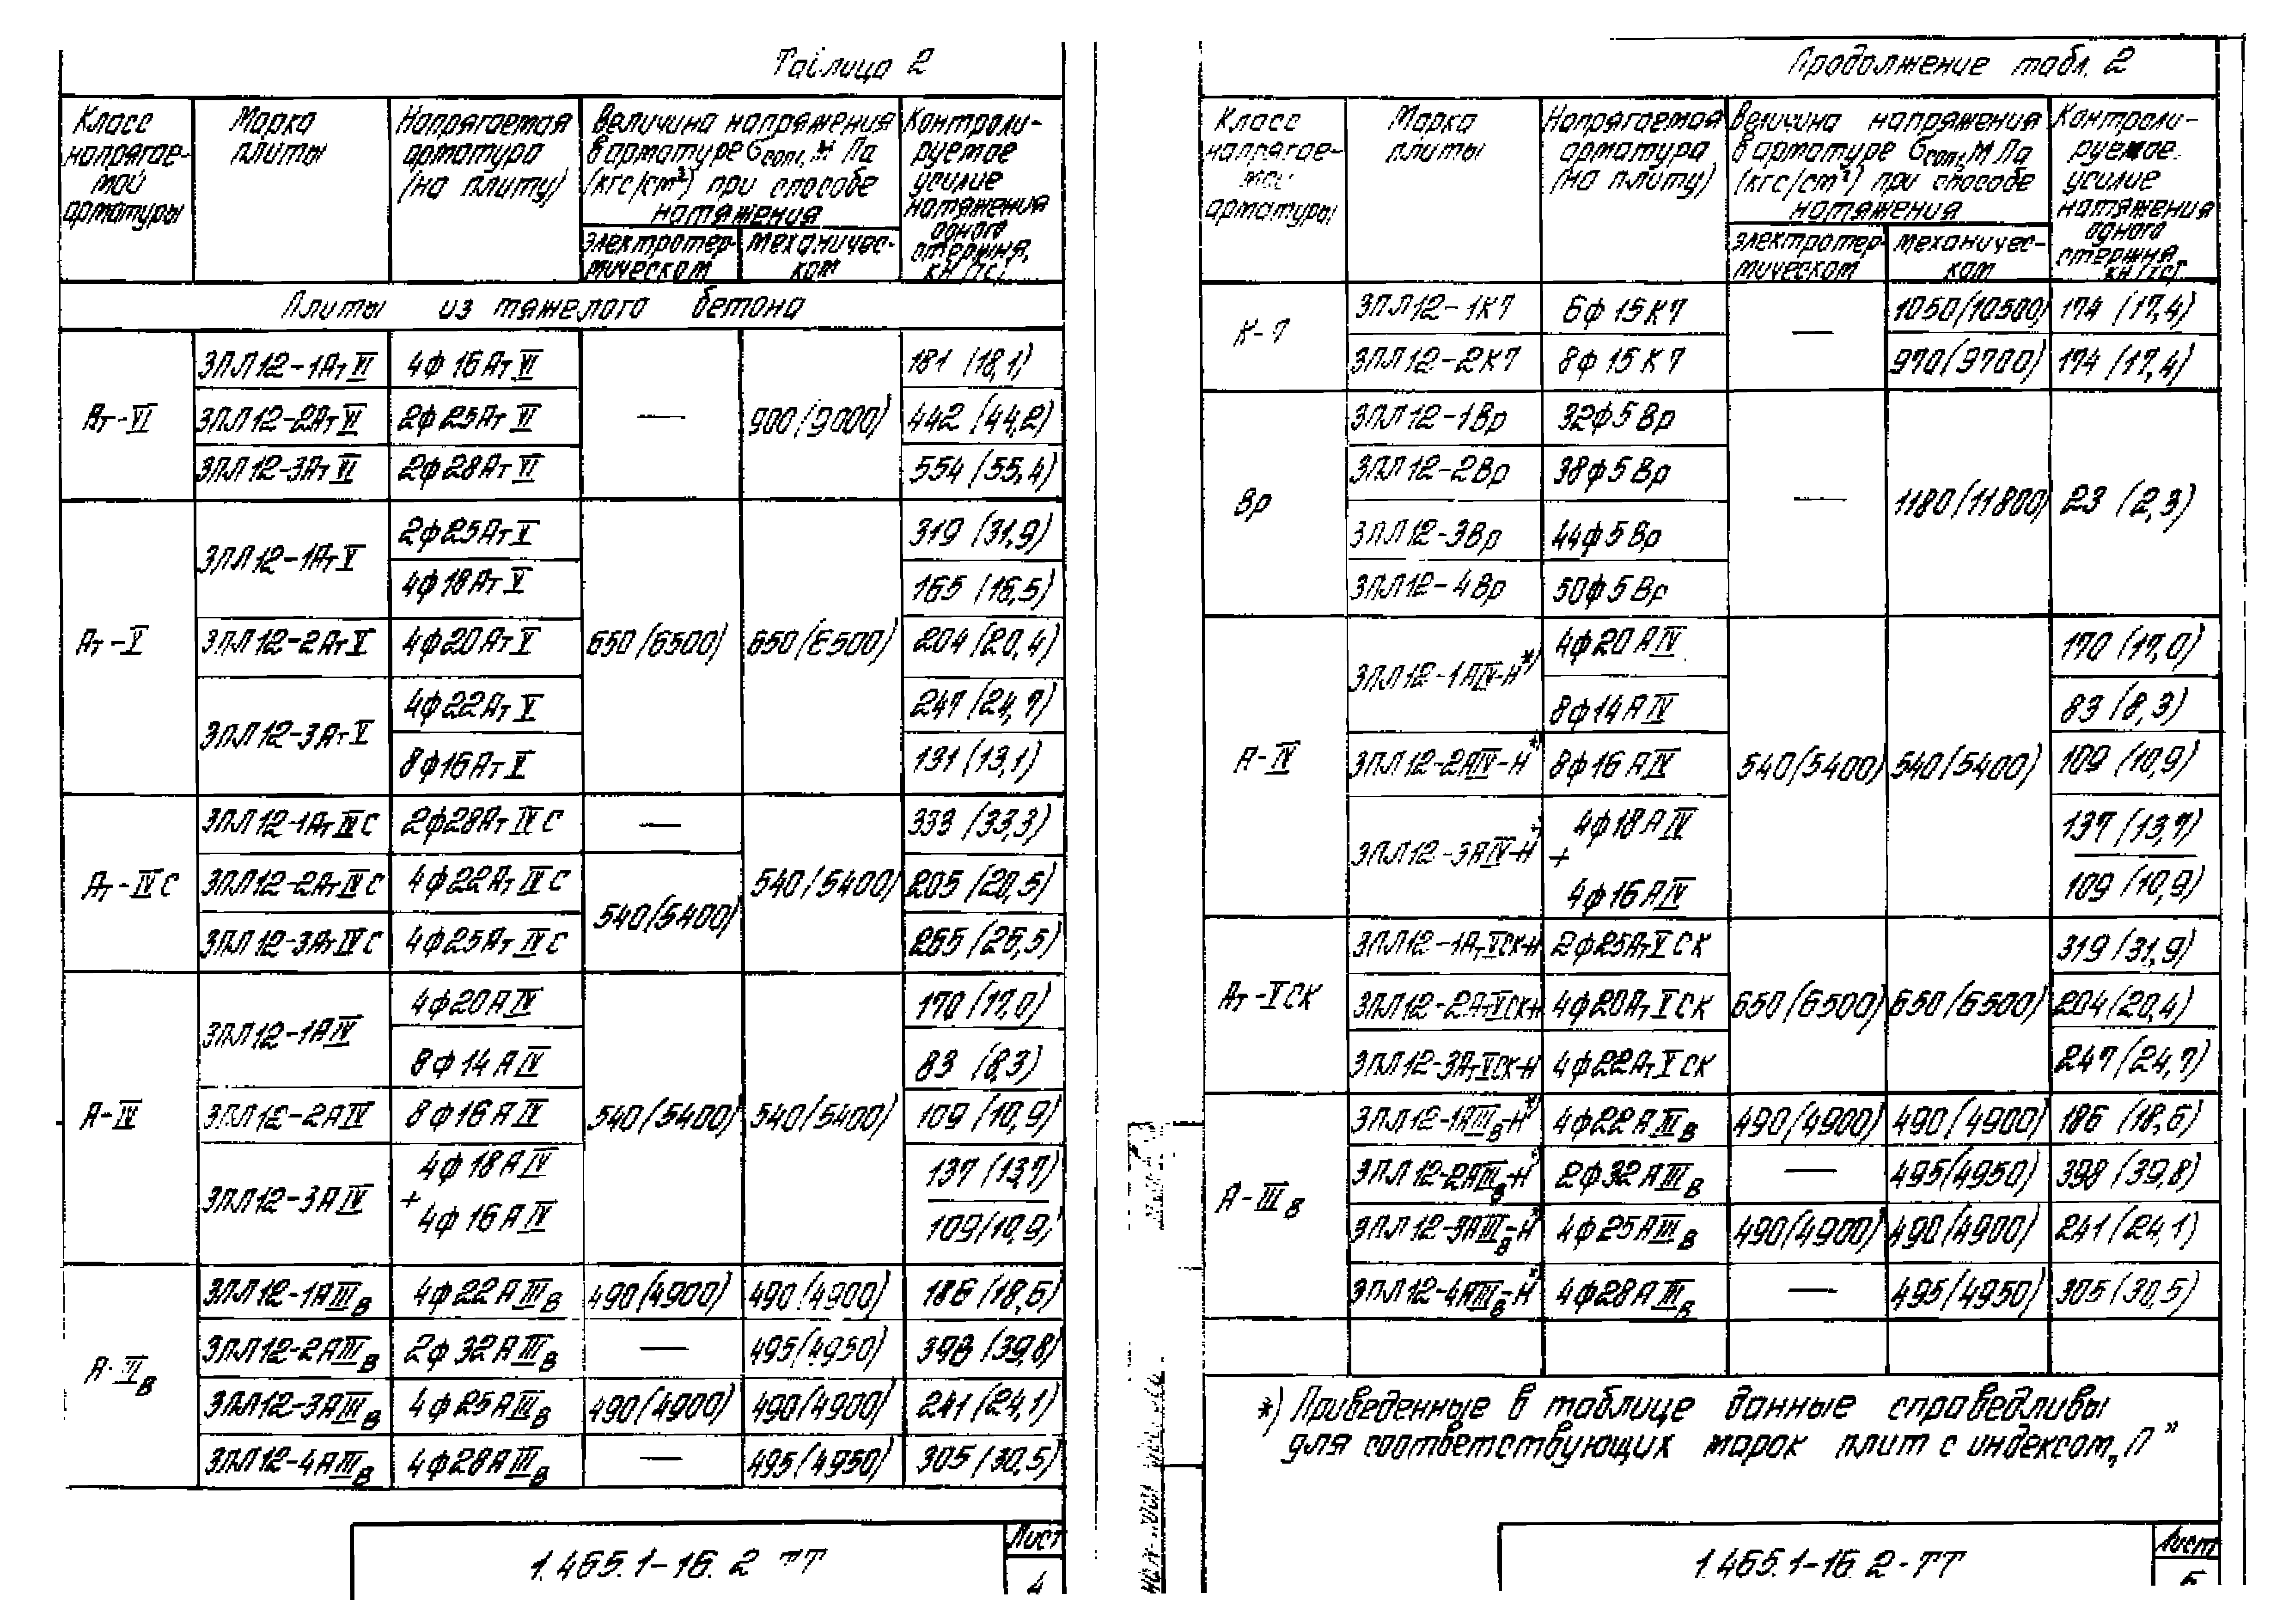 Таблица 2
Класс напрягаемой арматуры
Марка плиты
Напрягаемая арматура (на плиту)
Величина напряжения в арматуре Gсоп, МПа (кгс/cm²) при способе натяжения
электротермическом
механическом
Контролируемое усилие натяжения одного стержня, кН (тс)
Плиты из тяжелого бетона
Ат-VI
3ПЛ12-1АтVI 4ф16АтVI — 900(9000) 181 (18,1)
3ПЛ12-2АтVI 2ф25АтVI 442 (44,2)
3ПЛ12-3АтVI 2ф28АтVI 554 (55,4)
Ат-V
3ПЛ12-1АтV 2ф25АтV 650(6500) 650(6500) 319 (31,9)
4ф18АтV 165 (16,5)
3ПЛ12-2АтV 4ф20АтV 204 (20,4)
3ПЛ12-3АтV 4ф22АтV 247 (24,7)
8ф16АтV 131 (13,1)
Ат-IVС
3ПЛ12-1АтIVС 2ф28АтIVС — 540(5400) 333 (33,3)
3ПЛ12-2АтIVС 4ф22АтIVС 540(5400) 205 (20,5)
3ПЛ12-3АтIVС 4ф25АтIVС 265 (26,5)
А-IV
3ПЛ12-1АIV 4ф20АIV 540(5400) 540(5400) 170 (17,0)
8ф14АIV 83 (8,3)
3ПЛ12-2АIV 8ф16АIV 109 (10,9)
3ПЛ12-3АIV 4ф18АIV 137 (13,7)
+ 4ф16АIV 109 (10,9)
А-IIIв
3ПЛ12-1АIIIв 4ф22АIIIв 490(4900) 490(4900) 186 (18,6)
3ПЛ12-2АIIIв 2ф32АIIIв — 495(4950) 398 (39,8)
3ПЛ12-3АIIIв 4ф25АIIIв 490(4900) 490(4900) 241 (24,1)
3ПЛ12-4АIIIв 4ф28АIIIв — 495(4950) 305 (30,5)
1.465.1-16. 2 ТТ
Лист
4
Продолжение табл. 2
Класс напрягаемой арматуры
Марка плиты
Напрягаемая арматура (на плиту)
Величина напряжения в арматуре Gсоп, МПа (кгс/cm²) при способе натяжения
электротермическом
механическом
Контролируемое усилие натяжения одного стержня, кН (тс)
К-7
3ПЛ12-1К7 6ф15К7 — 1050(10500) 174 (17,4)
3ПЛ12-2К7 8ф15К7 970(9700) 174 (17,4)
Вр
3ПЛ12-1Вр 32ф5Вр — 1180(11800) 23 (2,3)
3ПЛ12-2Вр 38ф5Вр
3ПЛ12-3Вр 44ф5Вр
3ПЛ12-4Вр 50ф5Вр
А-IV
3ПЛ12-1АIV-Н*) 4ф20АIV 540(5400) 540(5400) 170 (17,0)
8ф14АIV 83 (8,3)
3ПЛ12-2АIV-Н* 8ф16АIV 109 (10,9)
3ПЛ12-3АIV-Н* 4ф18АIV 137 (13,7)
+ 4ф16АIV 109 (10,9)
Ат-VСК
3ПЛ12-1АтVСК-Н 2ф25АтVСК 650(6500) 650(6500) 319 (31,9)
3ПЛ12-2АтVСК-Н 4ф20АтVСК 204 (20,4)
3ПЛ12-3АтVСК-Н 4ф22АтVСК 247 (24,7)
А-IIIв
3ПЛ12-1АIIIв-Н* 4ф22АIIIв 490(4900) 490(4900) 186 (18,6)
3ПЛ12-2АIIIв-Н* 2ф32АIIIв — 495(4950) 398 (39,8)
3ПЛ12-3АIIIв-Н* 4ф25АIIIв 490(4900) 490(4900) 241 (24,1)
3ПЛ12-4АIIIв-Н* 4ф28АIIIв — 495(4950) 305 (30,5)
*) Приведенные в таблице данные справедливы
для соответствующих марок плит с индексом „П"
1.465.1-16. 2-ТТ
Лист
5